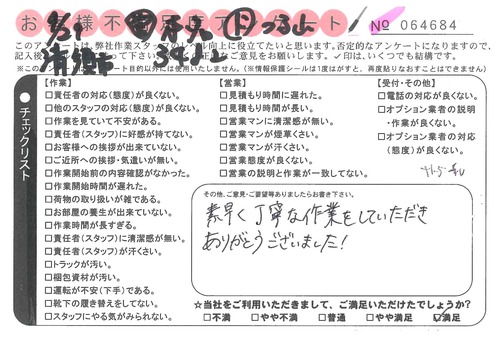 お客様不満足度アンケート
№ 064684
このアンケートは、弊社作業スタッフのレベル向上に役立てたいと思います。否定的なアンケートになりますので、
※このアンケート目的以外には使用いたしません。(※情報保護シールは1度はがすと、再度貼りなおすことはできません)
チェックリスト
【作業】
□責任者の対応(態度)が良くない。
□他のスタッフの対応(態度)が良くない。
□作業を見ていて不安がある。
□責任者(スタッフ)に好感が持てない。
□お客様への挨拶が出来ていない。
□ご近所への挨拶・気遣いが無い。
□作業開始前の内容確認がなかった。
□作業開始時間が遅れた。
□荷物の取り扱いが雑である。
□お部屋の養生が出来ていない。
□作業時間が長すぎる。
□責任者(スタッフ)に清潔感が無い。
□責任者(スタッフ)が汗くさい。
□トラックが汚い。
□梱包資材が汚い。
□運転が不安(下手)である。
□靴下の履き替えをしてない。
□スタッフにやる気がみられない。
【営業】
□見積もり時間に遅れた。
□見積もり時間が長い。
□営業マンに清潔感が無い。
□営業マンが煙草くさい。
□営業マンが汗くさい。
□営業態度が良くない。
□営業の説明と作業が一致してない。
【受付・その他】
□電話の対応が良くない。
□オプション業者の説明
・作業が良くない。
□オプション業者の対応
(態度)が良くない。
その他、ご意見・ご要望等ありましたらお書き下さい。
素早く丁寧な作業をしていただき
ありがとうございました!
☆当社をご利用いただきまして、ご満足いただけたでしょうか?
□不満 □やや不満 □普通 □やや満足 ☑満足